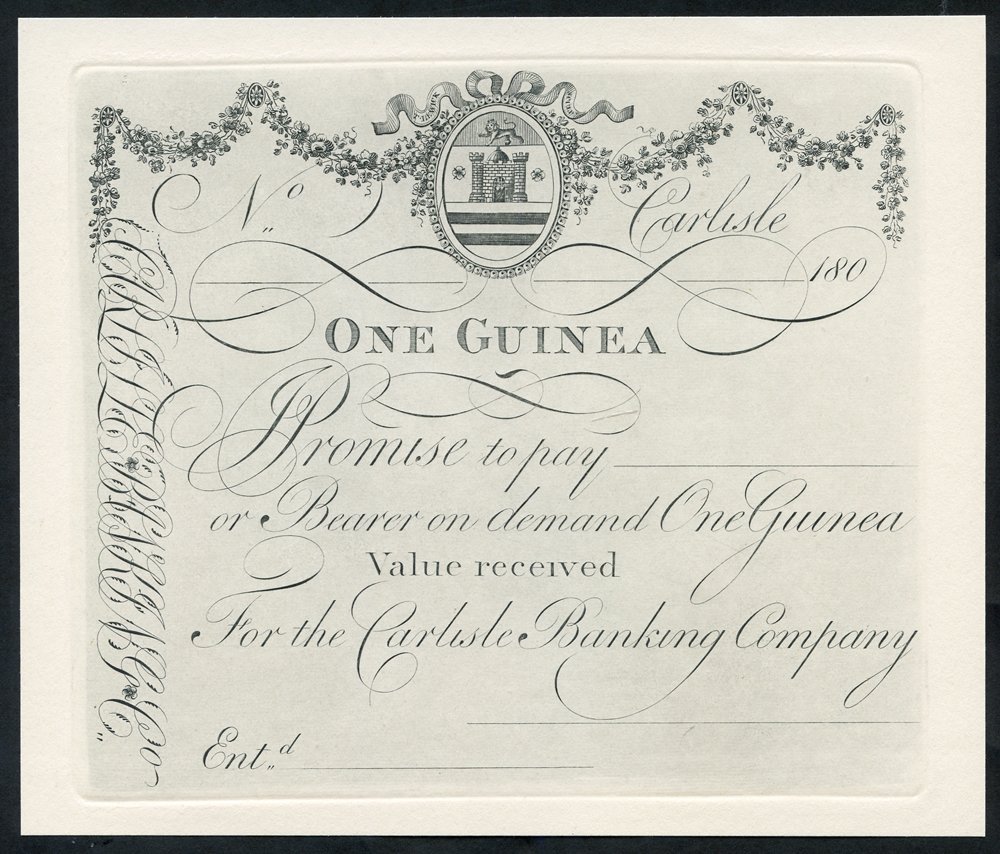 No
Carlisle
180
ONE GUINEA
I Promise to pay
or Bearer on demand One Guinea
Value received
For the Carlisle Banking Company
Ent,,d